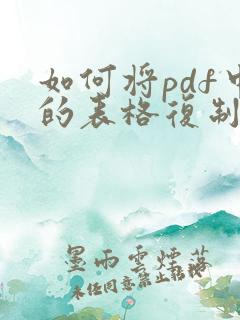 如何将pdf中
的表格復制
墨雨雲煙落
未经同意禁止転授